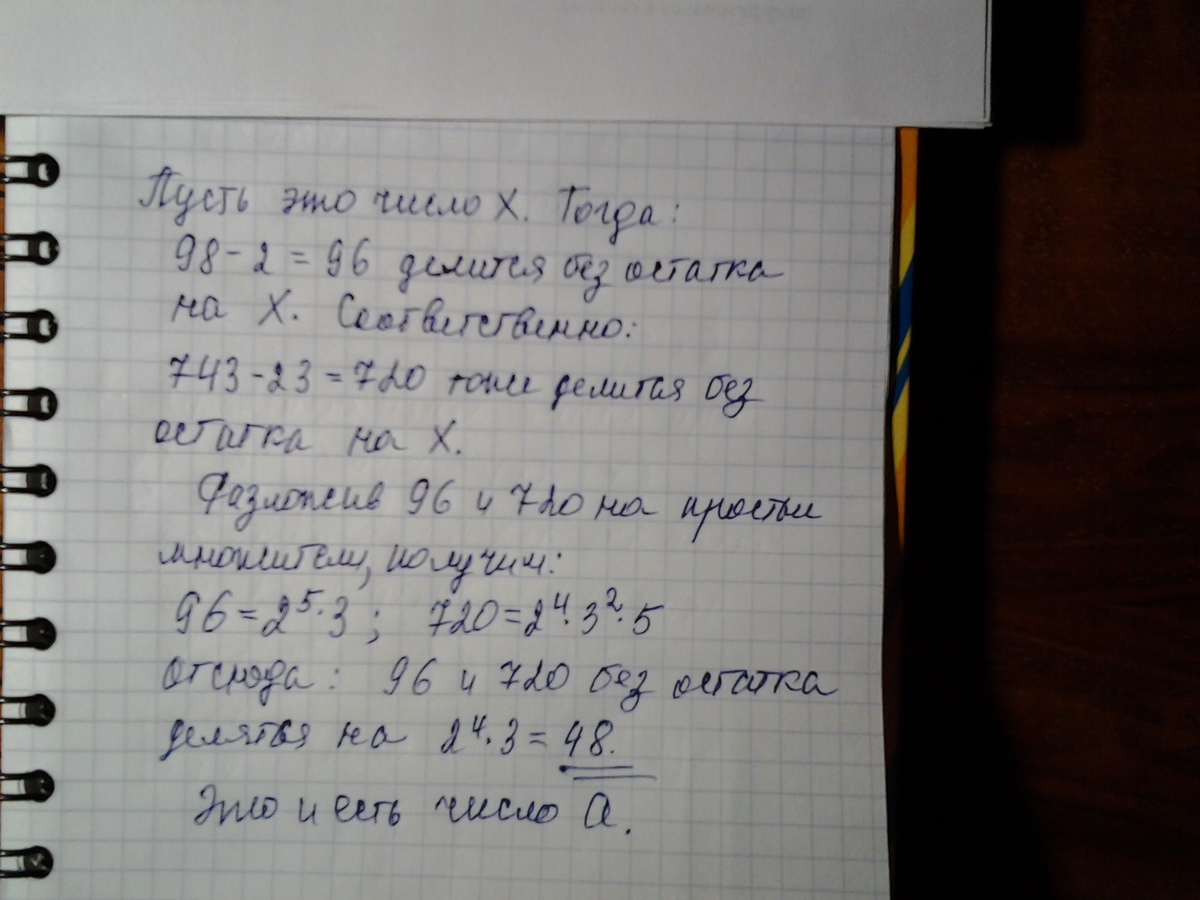 Пусть это число X. Тогда:
98-2=96 делится без остатка
на X. Соответственно:
743-23=720 тоже делится без
остатка на X.
Разложив 96 и 720 на простые
множители, получим:
96=2⁵·3; 720=2⁴·3²·5
отсюда: 96 и 720 без остатка
делятся на 2⁴·3=48.
Это и есть число a.